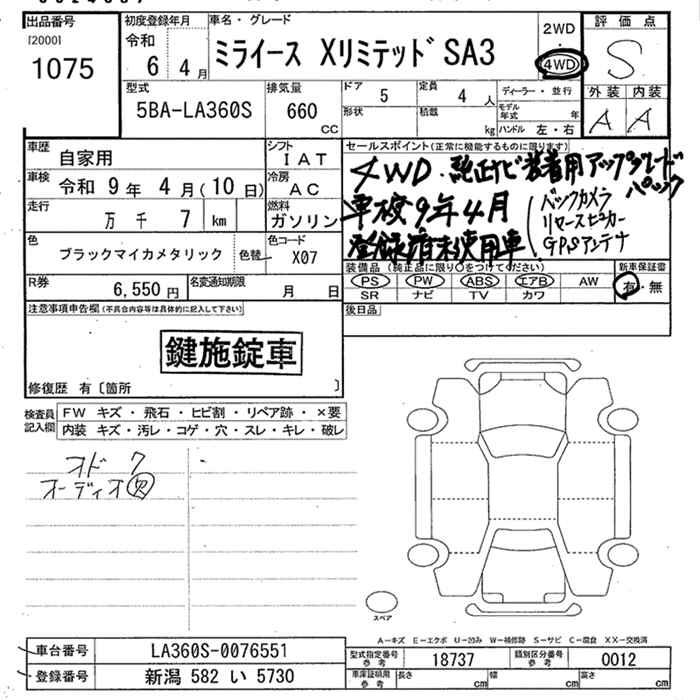 出品番号
[2000]
1075
初度登録年月
令和
6 4 月
車名・グレード
ミライース Xリミテッド SA3
2WD
4WD
評価点
S
外装 内装
A A
型式
5BA-LA360S
排気量
660
CC
ドア
5
定員
4 人
形状
積載
kg
ディーラー・並行
モデル年式 年
ハンドル 左・右
車歴
自家用
シフト
IAT
車検
令和 9 年 4 月 ( 10 日 )
冷房
AC
走行
万 千 7 km
燃料
ガソリン
色
ブラックマイカメタリック
色替
色コード
X07
R券
6,550 円
名変通知期限
月 日
セールスポイント(正常に機能するものに限ります)
4WD・純正ナビ装着用アップグレードパック
車検9年4月
登録済未使用車
バックカメラ
リヤスピーカー
GPSアンテナ
装備品 (純正品に限り〇をつけてください)
PS PW ABS エアB AW
SR ナビ TV カワ
新車保証書
有・無
後日品
注意事項申告欄(不具合内容等は具体的に記入して下さい)
鍵施錠車
修復歴 有〔箇所 〕
検査員記入欄
FW キズ・飛石・ヒビ割・リペア跡・×要
内装 キズ・汚レ・コゲ・穴・スレ・キレ・破レ
オド 7
オーディオ欠
スペア
A−キズ E−エクボ U−凹み W−補修跡 S−サビ C−腐食 XX−交換済
車台番号
LA360S-0076551
登録番号
新潟 582 い 5730
型式指定番号
参考
18737
類別区分番号
参考
0012
車庫証明用
参考
長さ cm
幅 cm
高さ cm